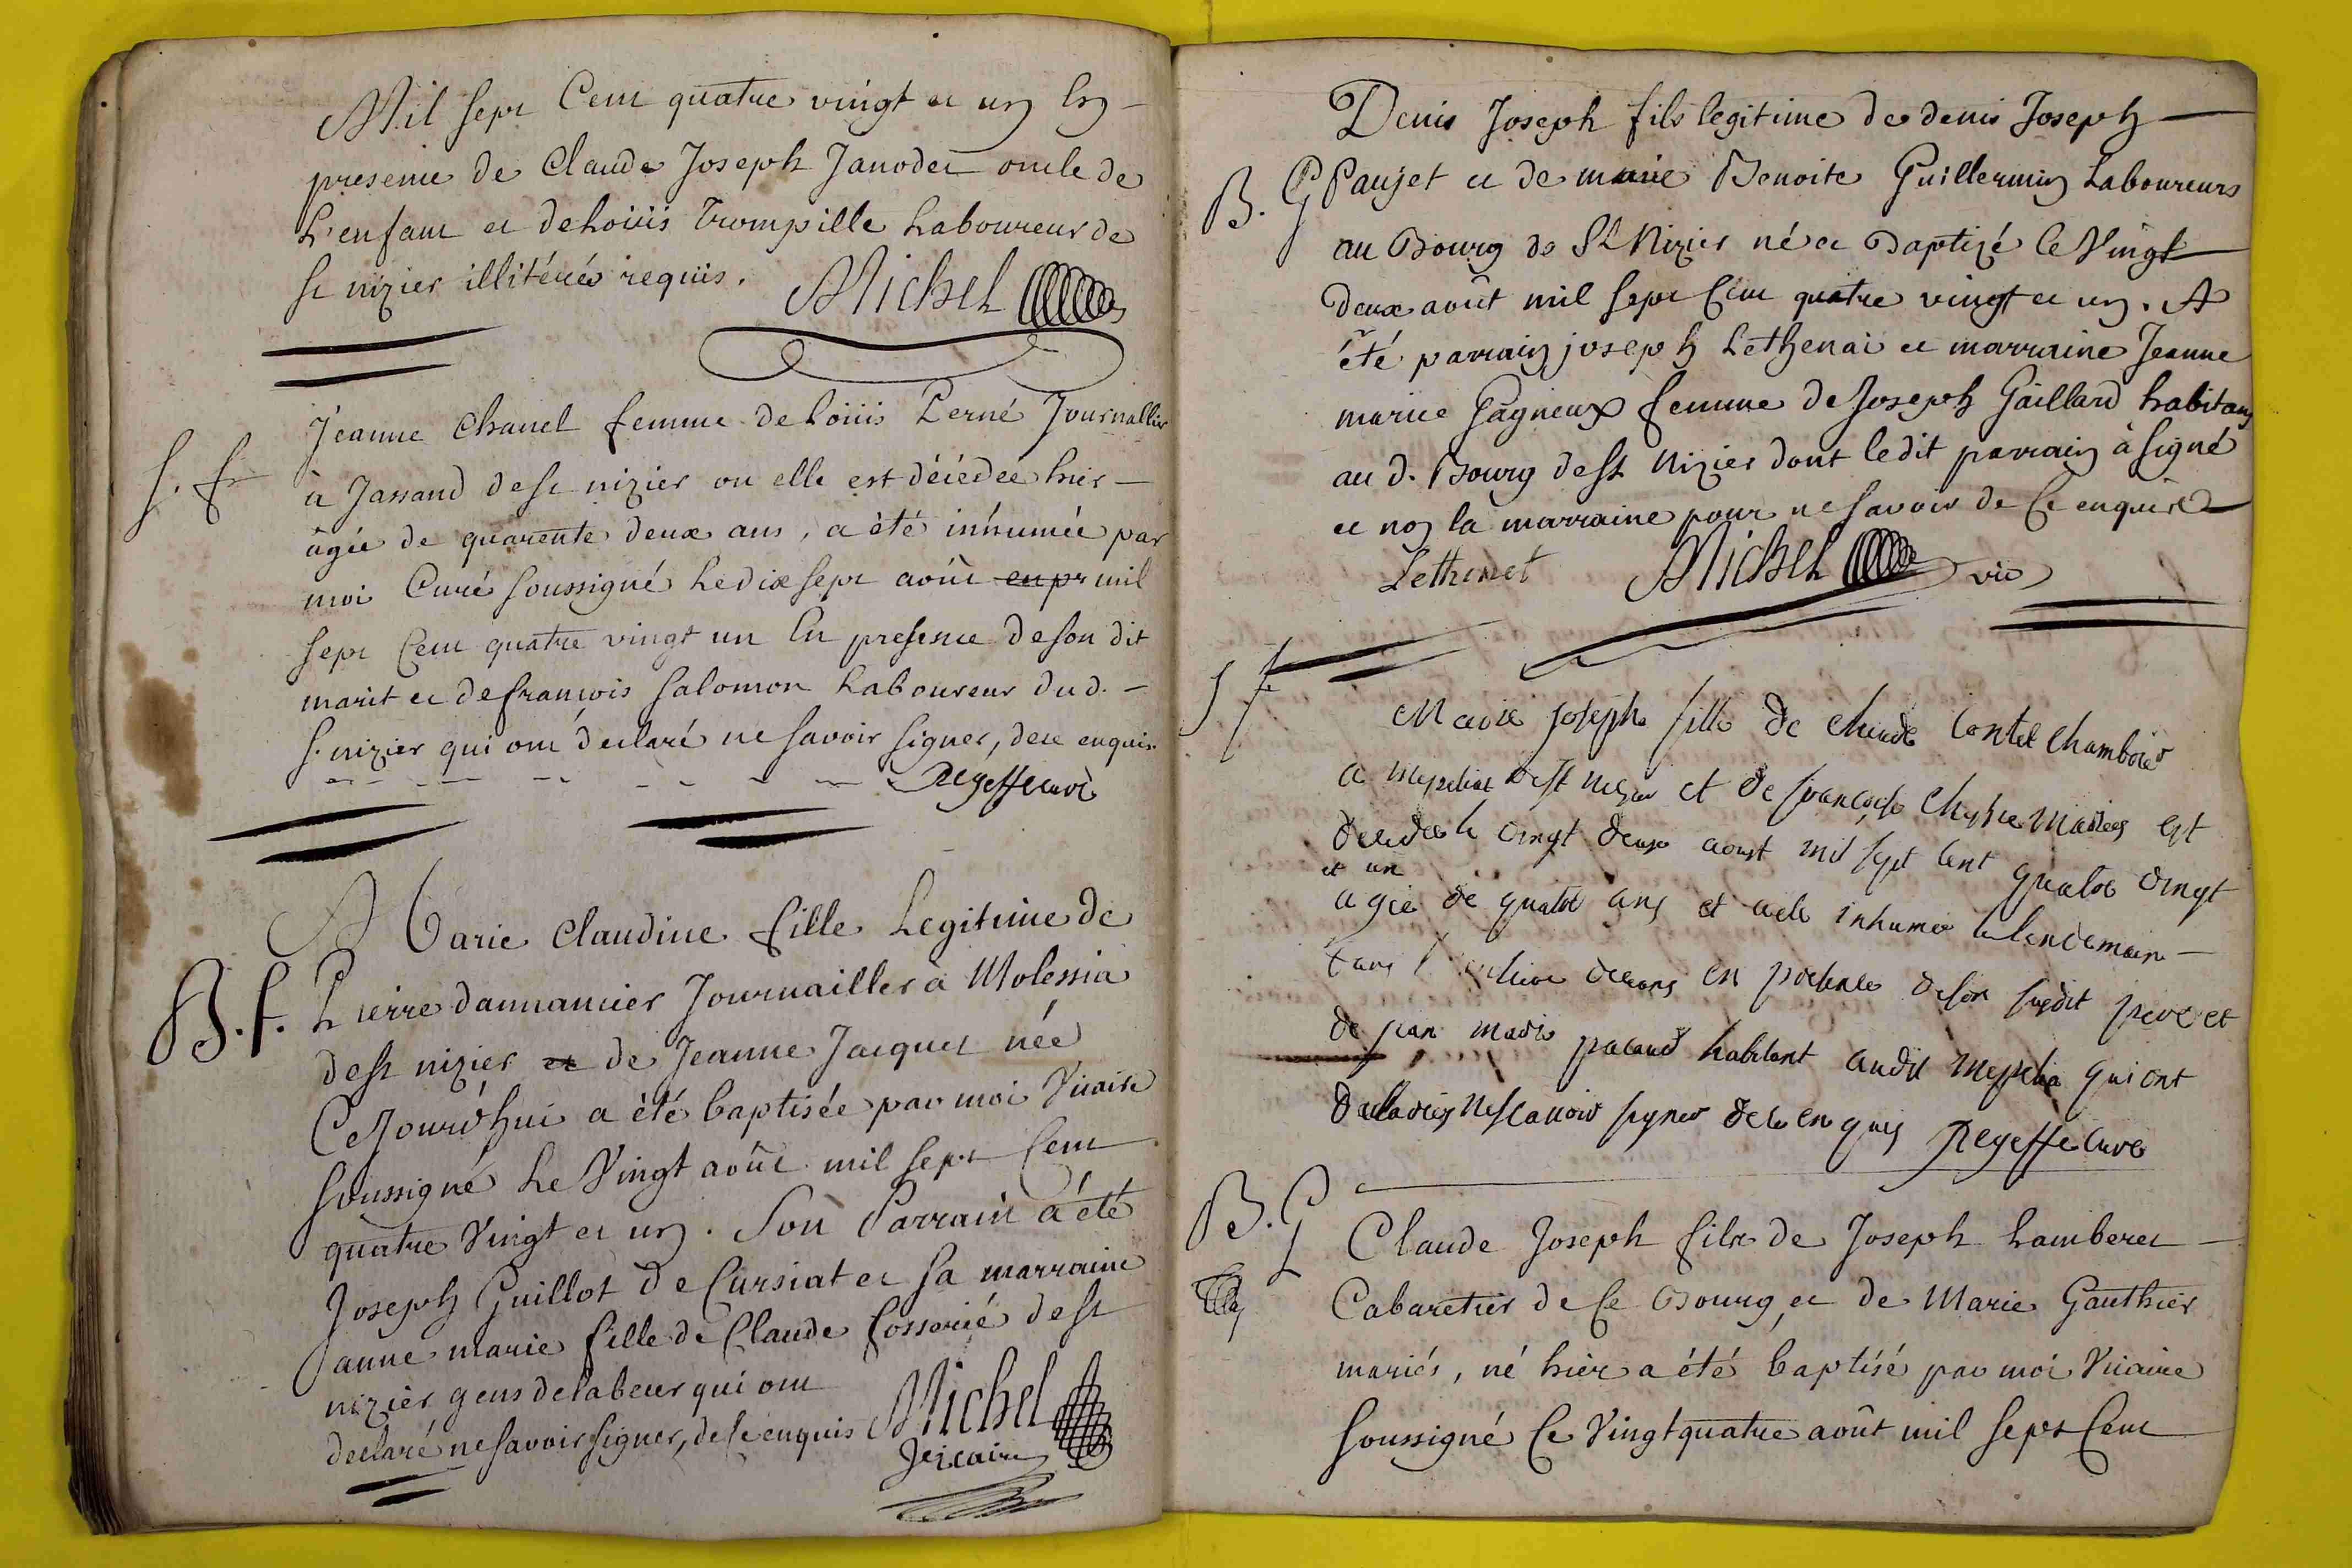 Mil sept Cent quatre vingt et un En
presence de Claude Joseph Janodet oncle de
L'enfant et de Loüis Trompille Laboureur de
St nizier illitérés requis. Michel
S. f
Jeanne Chanel femme de Loüis Perné Journallier
à Jassand de St nizier ou elle est décédée hier
âgée de quarente deux ans, a été inhumée par
moi Curé soussigné Le dix sept août en pr mil
sept Cent quatre vingt un En presence de son dit
marit et de francois Salomon Laboureur dud.
S. nizier qui ont déclaré ne savoir signer, de ce enquis.
Regeffe curé
B. f.
Marie Claudine fille Legitime de
Pierre dannancier Journaillier à Molessia
de St nizier et de Jeanne Jacquet née
Cejourd'hui a été baptisée par moi Vicaire
Soussigné Le Vingt août mil sept Cent
quatre Vingt et un. Son Parrain a été
Joseph Guillot de Cursiat et sa marraine
anne marie fille de Claude de St
nizier gens de labeur qui ont
declaré ne savoir signer, de ce enquis Michel
Vicaire
Denis Joseph fils legitime de denis Joseph
B. G
Paujet et de marie Benoite Guillermin Laboureurs
au Bourg de St Nizier né et Baptizé le Vingt
deux août mil sept Cent quatre vingt et un. A
été parrain joseph Lethenai et marraine Jeanne
marie Gagneux femme de Joseph Gaillard habitans
au d. Bourg de St Nizier dont ledit parrain à signé
et non la marraine pour ne savoir de Ce enquise
Lethenet Michel vic
S f
Marie Joseph fille de Claude Contet Chambier
a de St nizier et de françoise mariés est
decedée le vingt deux aoust mil sept cent quatre vingt
et un
agée de quatre ans et a eté inhumée le lendemain
dans en presence de son susdit pere et
de jean marie pacaud habitant audit qui ont
declarés ne scavoir signer de ce enquis Regeffe Curé
B. G
Claude Joseph fils de Joseph Lamberet
Cabaretier de Ce Bourg, et de Marie Gauthier
mariés, né hier a été baptisé par moi Vicaire
soussigné Ce Vingt quatre août mil sept Cent